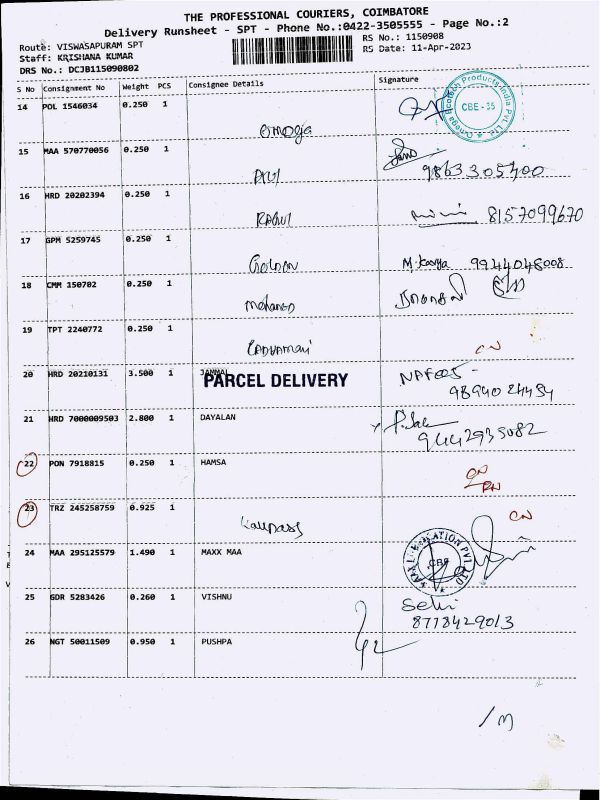 THE PROFESSIONAL COURIERS, COIMBATORE
Delivery Runsheet - SPT - Phone No.:0422-3505555 - Page No.:2
Route: VISWASAPURAM SPT RS No.: 1150908
Staff: KRISHANA KUMAR RS Date: 11-Apr-2023
DRS No.: DCJB115090802
S No Consignment No Weight PCS Consignee Details Signature
14 POL 1546034 0.250 1
Omega
Omega Ecotech Products India Pvt. Ltd. CBE - 35
15 MAA 570770056 0.250 1
9863305700
16 HRD 20202394 0.250 1
RAGUL 8157099670
17 GPM 5259745 0.250 1
M. Kavya 9944048008
18 CMM 150702 0.250 1
Mohanan
19 TPT 2240772 0.250 1
CN
20 HRD 20210131 3.500 1 JAMMAL
PARCEL DELIVERY
NAFEES
9894024454
21 HRD 7000009503 2.800 1 DAYALAN
9442935082
22 PON 7918815 0.250 1 HAMSA
CN
23 TRZ 245258759 0.925 1
CN
24 MAA 295125579 1.490 1 MAXX MAA
CBE
25 GDR 5283426 0.260 1 VISHNU
Selvi
8778429013
26 NGT 50011509 0.950 1 PUSHPA